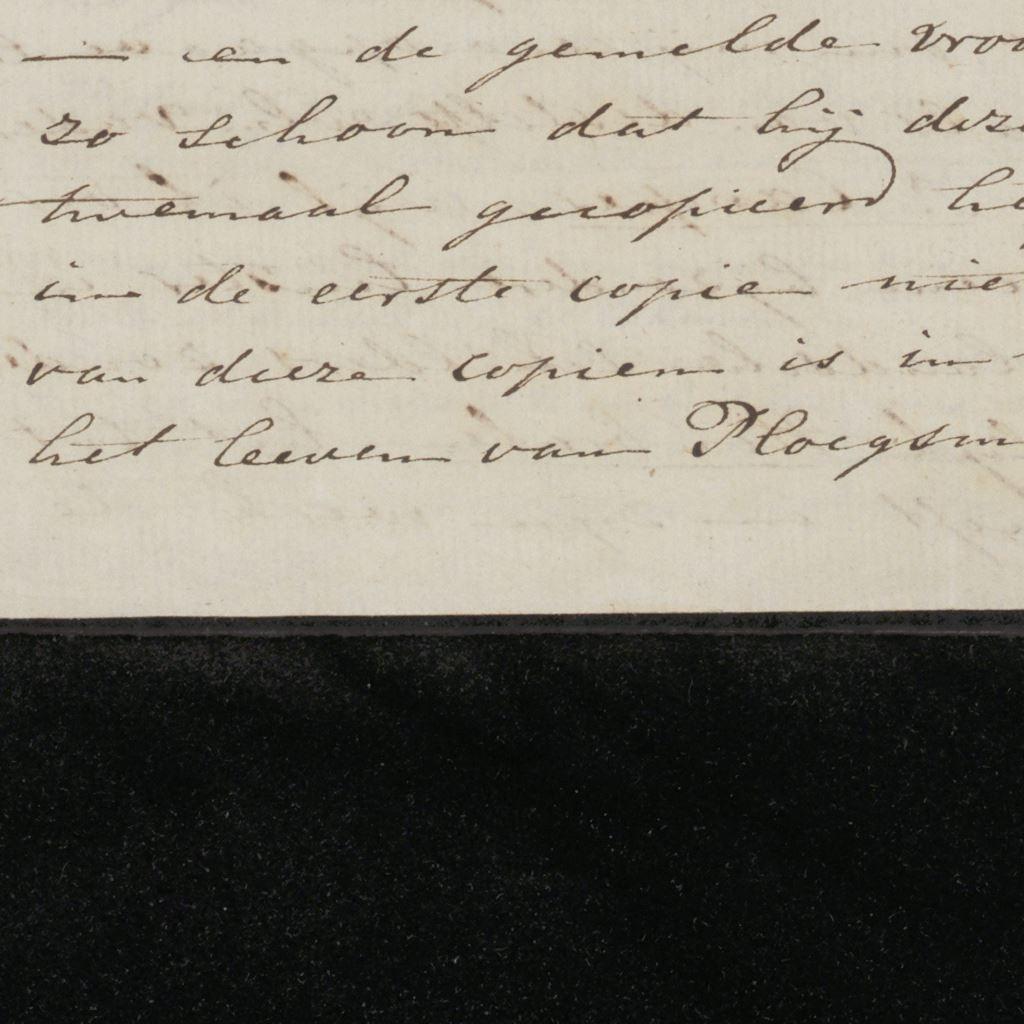 — en de gemelde
zo schoon dat hij
twemaal gecopieerd
in de eerste copie
van dieze copien is in
het leeven van Ploegsm